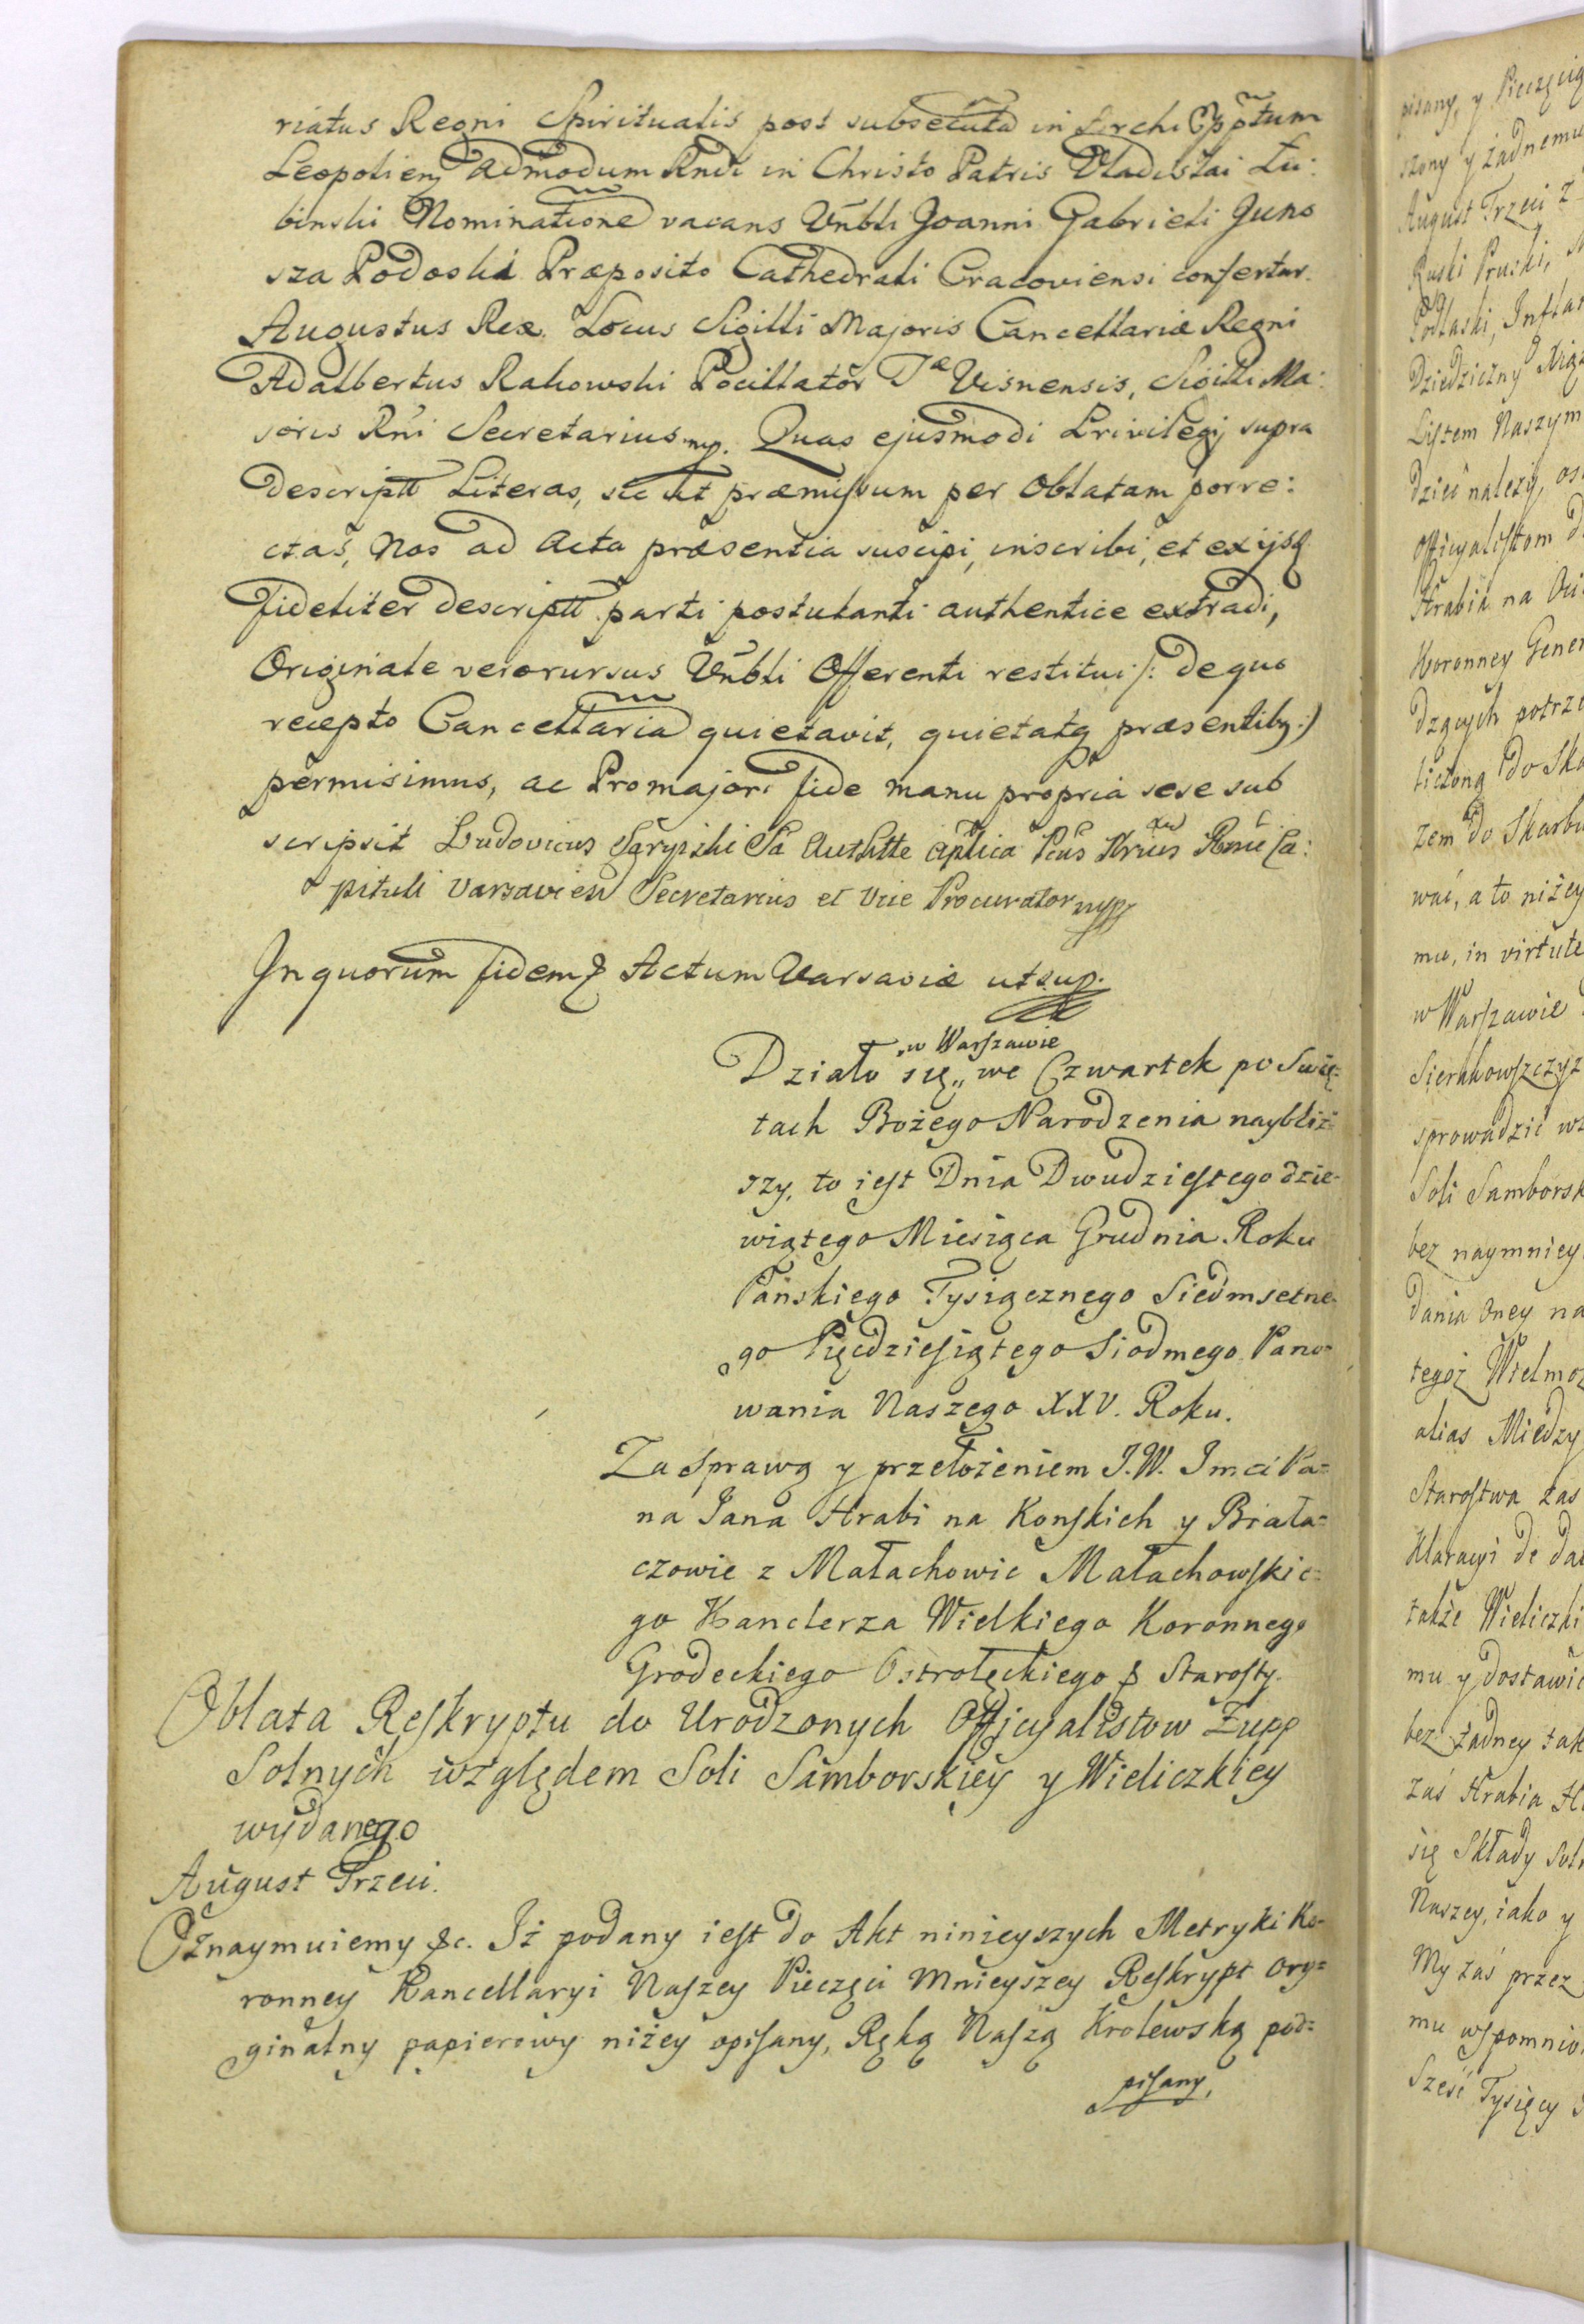 riatus Regni Spiritualis post subsecuta in Archi Eppatum
Leopolien Admodum Rndi in Christo Patris Vladislai Łu:
binski Nominatione vacans Vnbli Joanni Gabrieli Juno
sza Podoski Præposito Cathedrali Cracoviensi confertur.
Augustus Rex. Locus Sigilli Majoris Cancellariæ Regni
Adalbertus Rakowski Pocillator Tæ Visnensis, Sigilli Ma:
joris Rni Secretarius mp. Quas ejusmodi Privilegij supra
descriptt Literas, sic ut præmissum per Oblatam porre:
ctas, Nos ad Acta præsentia suscipi, inscribi, et ex ijsq
fideliter descriptt parti postulanti authentice extradi,
Originale vero rursus Vnbli Offerenti restitui /: de quo
recepto Cancellaria quietavit, quietatq præsentibq :/
permisimus, ac Pro majori fide manu propria sese sub
scripsit Ludovicus
pituli Varsavien Secretarius et Vice Procurator mpp
In quorum fidem & Actum Varsaviæ ut sup.
w Warszawie
Działo się,, we Czwartek po Swię-
tach Bożego Narodzenia naybliż=
szy, to iest Dnia Dwudziestego dzie-
wiątego Miesiąca Grudnia Roku
Pańskiego Tysiącznego Siedmsetne-
go Pięćdziesiątego Siodmego Pano=
wania Naszego XXV. Roku.
Za Sprawą y przełożeniem J.W. Imci Pa=
na Jana Hrabi na Konskich y Biała=
czowie z Małachowic Małachowskie=
go Kanclerza Wielkiego Koronnego
Grodeckiego Ostrołęckiego & Starosty.
Oblata Reskryptu do Urodzonych Officyalistow Żupp
Solnych względem Soli Samborskiey y Wieliczkiey
wydanego
August Trzeci.
Oznaymuiemy &c. Iż podany iest do Akt ninieyszych Metryki Ko-
ronney Kancellaryi Naszey Pieczęci Mnieyszey Reskrypt Ory=
ginalny papierowy niżey opisany, Ręką Naszą Krolewską pod=
pisany,
pisany, y Pieczęcią
szony y żadnemu
August Trzeci z
Ruski Pruski,
Podlaski, Inflan
Dziedziczny Xiąż
Listem Naszym
dzieć należy, os
Officyalistom d
Hrabia na
Koronney Gener
dzących potrze
liczoną do Ska
zem do Skarbu
wać, a to niżey
mu, in virtute
w Warszawie
Sierakowszczyz
sprowadzić wz
Soli Samborsk
bez naymniey
dania Oney na
tegoż Wielmoż
alias Miedzy
Starostwa zas
Klarowi de da
także Wieliczki
mu y dostawić
bez żadney tak
zaś Hrabia
się Składy Soln
Naszey, iako y
My zaś przez
mu wspomnio
Sześć Tysięcy